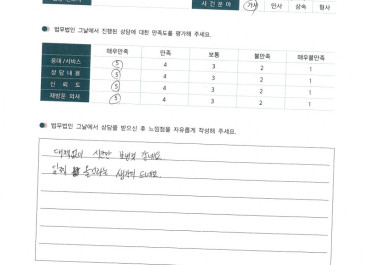 사건분야 가사 민사 상속 형사
법무법인 그날에서 진행된 상담에 대한 만족도를 평가해 주세요.
매우만족 만족 보통 불만족 매우불만족
응대/서비스 5 4 3 2 1
상담내용 5 4 3 2 1
신뢰도 5 4 3 2 1
재방문 의사 5 4 3 2 1
법무법인 그날에서 상담을 받으신 후 느낌점을 자유롭게 작성해 주세요.
대책없이 시간만
일찍 올걸하는 생각이 드네요